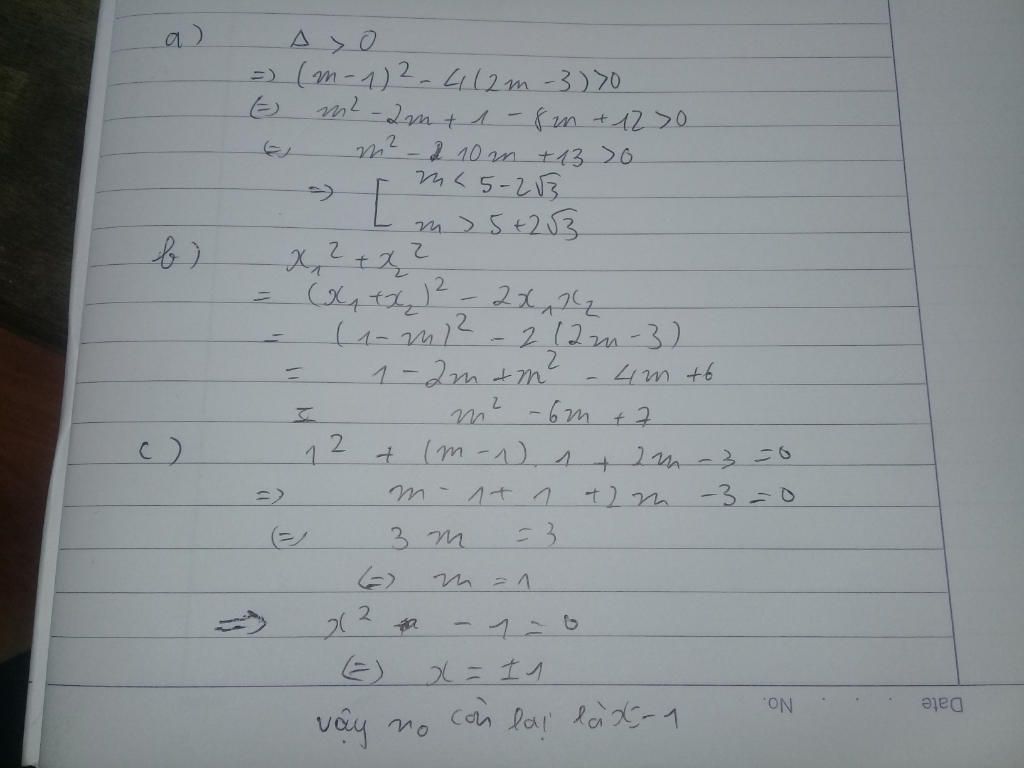 a) Δ > 0
=> (m - 1)² - 4(2m - 3) > 0
<=> m² - 2m + 1 - 8m + 12 > 0
<=> m² - 10m + 13 > 0
=> [ m < 5 - 2√3
m > 5 + 2√3
b) x₁² + x₂²
= (x₁ + x₂)² - 2x₁x₂
= (1 - m)² - 2(2m - 3)
= 1 - 2m + m² - 4m + 6
= m² - 6m + 7
c) 1² + (m - 1).1 + 2m - 3 = 0
=> m - 1 + 1 + 2m - 3 = 0
<=> 3m = 3
<=> m = 1
=> x² - 1 = 0
<=> x = ±1
Date . . . No.
vậy no còn lại là x = -1